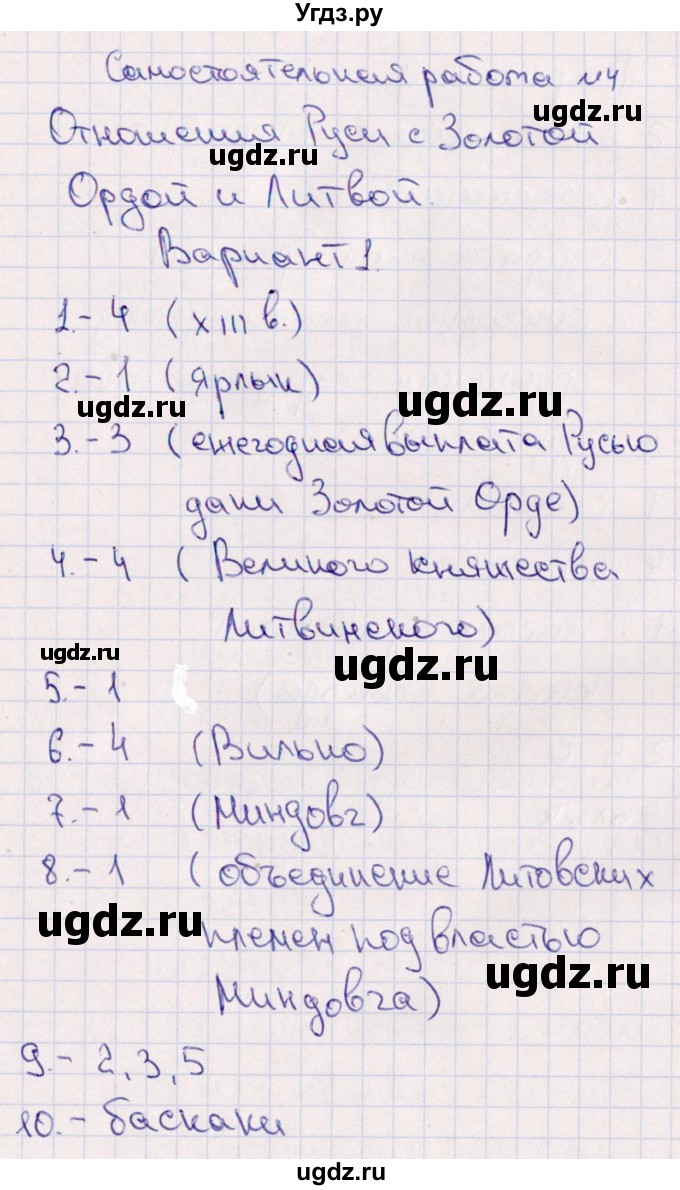 Угдз.ру
Самостоятельная работа №4
Отношения Руси с Золотой
ugdz.ru
ugdz.ru
Ордой и Литвой.
Вариант 1.
1.- 4 (XIII в.)
2.- 1 (Ярлык)
ugdz.ru
ugdz.ru
3.- 3 (ежегодная выплата Русью
дани Золотой Орде)
4.- 4 (Великого княжества
Литвинского)
ugdz.ru
ugdz.ru
5.- 1
6.- 4 (Вильно)
7.- 1 (Миндовг)
8.- 1 (объединение Литовских
ugdz.ru
племен под властью
ugdz.ru
Миндовга)
9.- 2, 3, 5
10.- баскаки
ugdz.ru